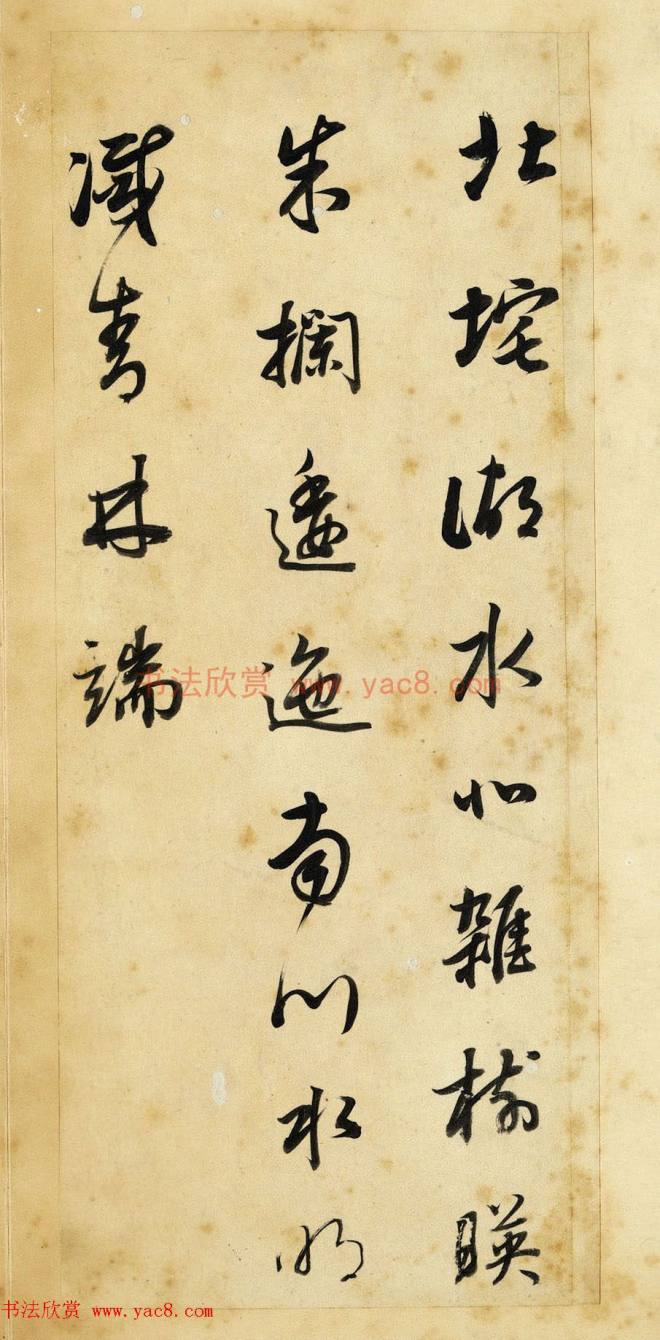 北垞湖水北雜樹暎
朱欄逶迤南川水明
滅青林端
书法欣赏 www.yac8.com
书法欣赏 www.yac8.com